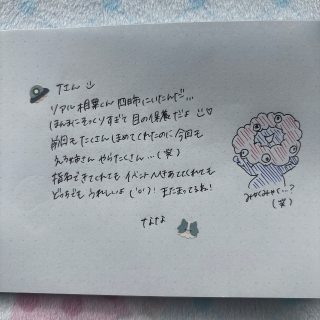 リアル相葉くん四時にいたんだ…
ほんまにそっくりすぎて目の保養だよ
前回もたくさんほめてくれたのに今回も
やらたくさん…(笑)
指名できてくれても イベントんときあてくれても
どっちでも うれしいよ ('o')! またまってるね!
ななな
みゃくみゃく…?
(笑)